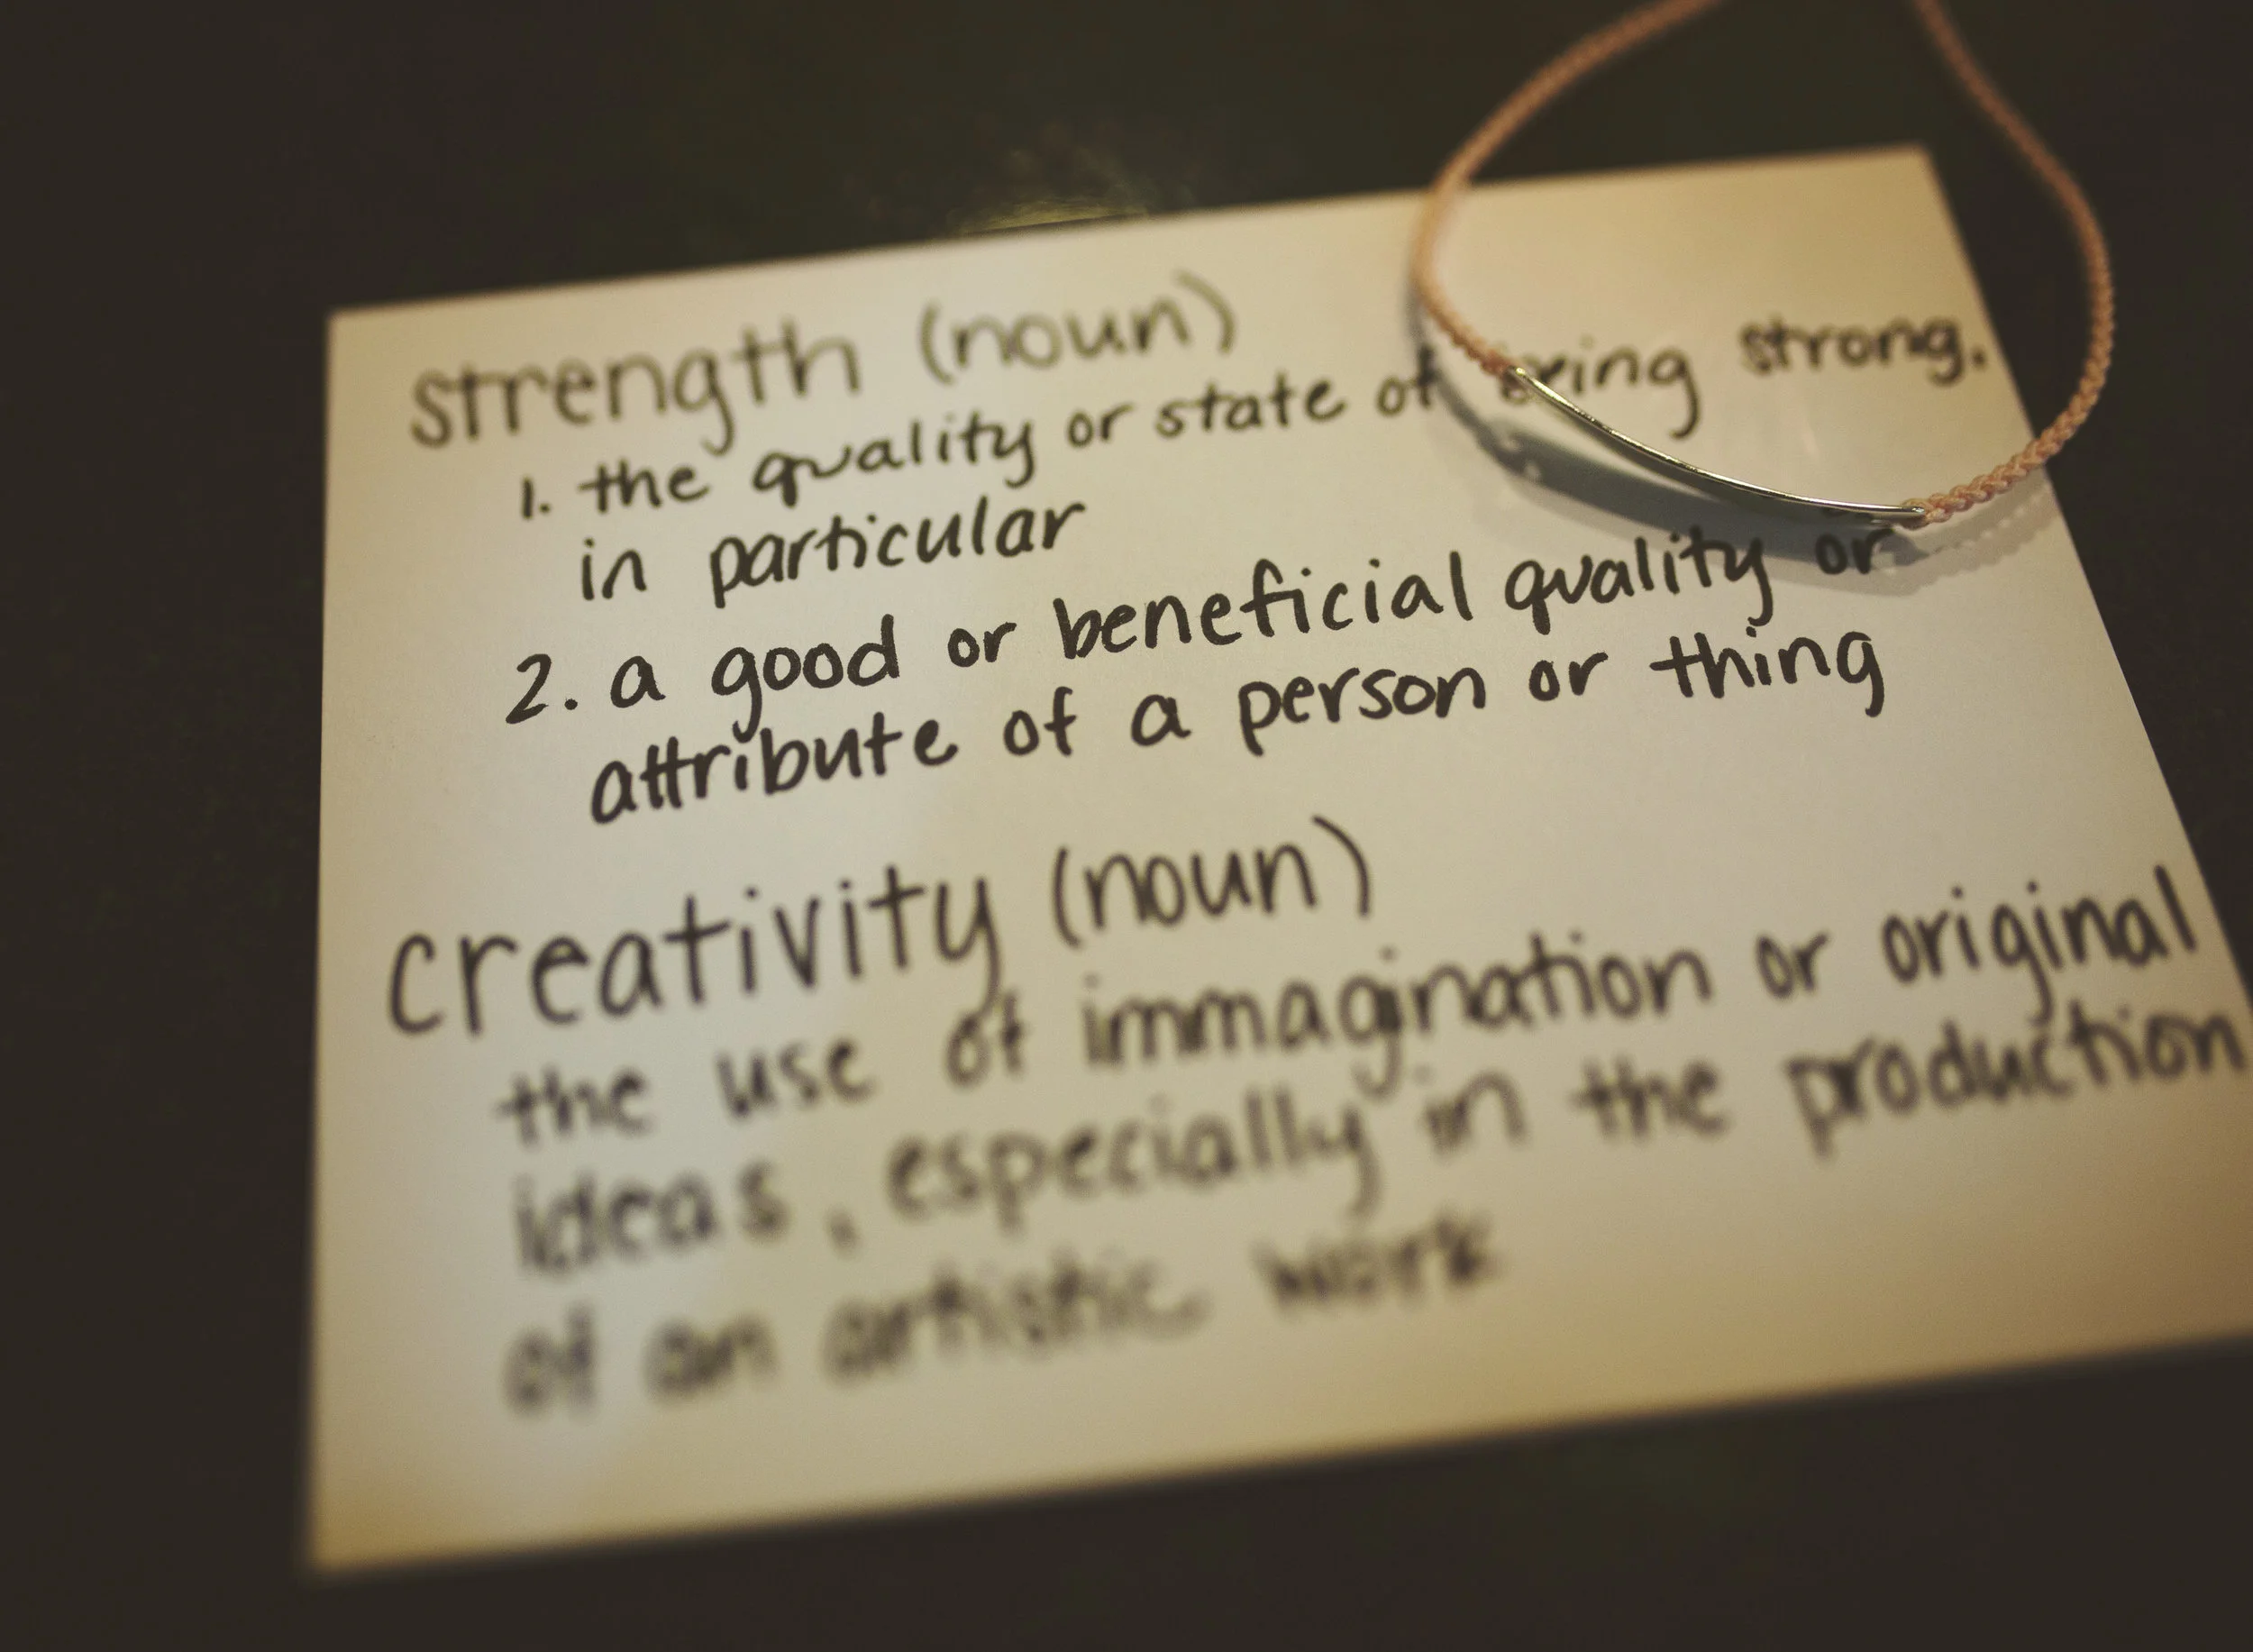 strength (noun)
1. the quality or state of being strong.
in particular
2. a good or beneficial quality or
attribute of a person or thing
creativity (noun)
the use of immagination or original
ideas, especially in the production
of an artistic work